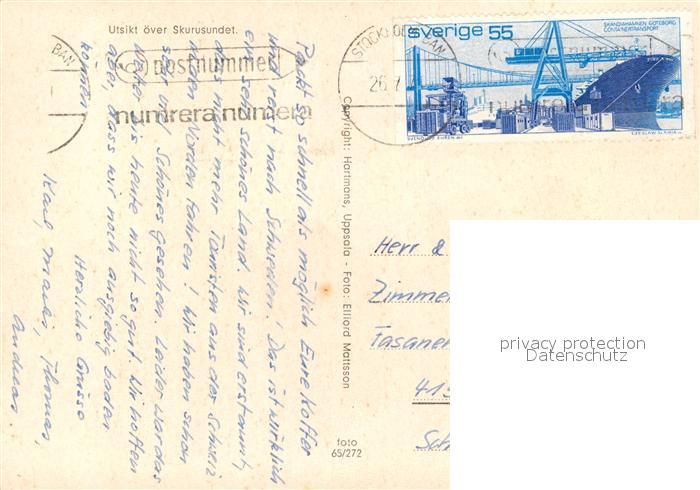 Utsikt över Skurusundet.
BAN
postnummer!
numrera numera
STOCKHOLM BAN
26.7
sverige 55
SKANDIAHAMNEN GÖTEBORG
CONTAINERTRANSPORT
postnummer
numrera numera
CZESLAW SLANIA SC.
Packt so schnell als möglich Eure Koffer
und reist nach Schweden! Das ist wirklich
ein sehr schönes Land. Wir sind erstaunt,
dass nicht mehr Touristen aus der Schweiz
in den Norden fahren! Wir haben schon
sehr viel Schönes gesehen. Leider war das
Wetter bis heute nicht so gut. Wir hoffen
aber, dass wir noch ausgiebig baden
können.
Herzliche Grüsse
Karl, Thomas,
Andreas.
Copyright: Hartmans, Uppsala - Foto: Elliord Mattsson
foto
65/272
Herr &
Zimmer
Fasanen
41
Sch
privacy protection
Datenschutz